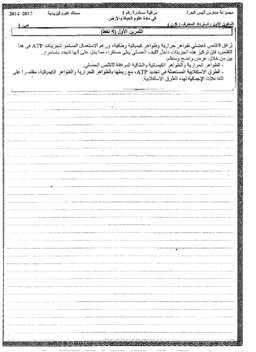 مجموعة مدارس أنيس الحرة مراقبة مستمرة رقم 1 مسلك علوم فيزيائية 2017-2014
في مادة علوم الحياة والأرض
المكون الأول : استرداد المعارف ( 5 ن )
التمرين الأول (5 نقط)
يرافق التقلص العضلي ظواهر حرارية وظواهر كيميائية وطاقية، ورغم الاستعمال المستمر لجزيئات ATP في هذا
التقلص، فإن تركيز هذه الجزيئات داخل الليف العضلي يبقى مستقرا، مما يدل على أنها تتجدد باستمرار.
بين من خلال عرض واضح ومنظم:
- الظواهر الحرارية والظواهر الكيميائية والطاقية المرافقة للتقلص العضلي.
- الطرق الاستقلابية المتدخلة في تجديد ATP، مع ربطها بالظواهر الحرارية والظواهر الكيميائية، مقتصرا على
التفاعلات الإجمالية لهذه الطرق الاستقلابية.